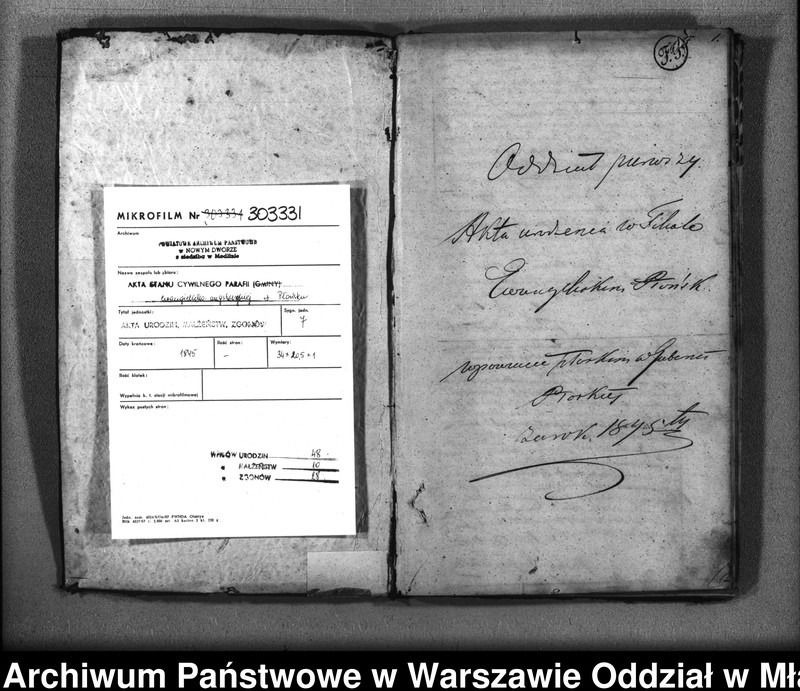 MIKROFILM Nr 303331
Archiwum
POWIATOWE ARCHIWUM PAŃSTWOWE
w NOWYM DWORZE
z siedzibą w Modlinie
Nazwa zespołu lub zbioru:
AKTA STANU CYWILNEGO PARAFII (GMINY)
ewangelicko augsburskiej w Płońsku
Tytuł jednostki:
Sygn. jedn.
AKTA URODZIN, MAŁŻEŃSTW, ZGONÓW
7
Daty krańcowe:
Ilość stron:
Wymiary:
1845
–
34 × 20,5 × 1
Ilość klatek:
Wypełnia k. t. stacji mikrofilmowej
Wykaz pustych stron:
WPISÓW URODZIN 48
" MAŁŻEŃSTW 10
" ZGONÓW 28
1.
Oddział pierwszy.
Akta urodzenia w Filiale
Ewangelickim Płońsk.
w powiecie płockim w Gubernii
Płockiej
za rok 1845ty
Archiwum Państwowe w Warszawie Oddział w Mła